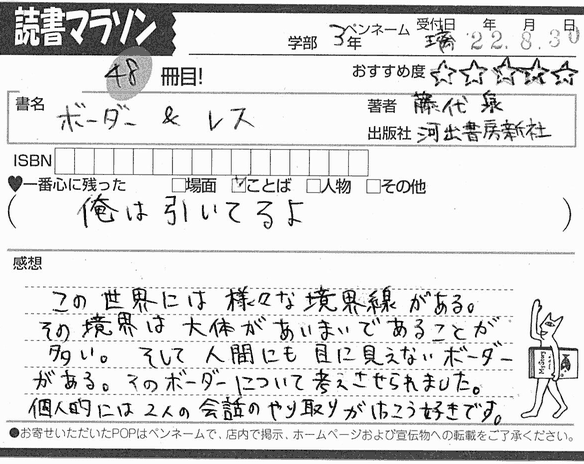 読書マラソン
学部 3年 ペンネーム 璃 受付日 年 月 日
22.8.30
48 冊目!
おすすめ度 ☆☆☆☆☆
書名 ボーダー & レス
著者 藤代 泉
出版社 河出書房新社
ISBN
♥一番心に残った □場面 ☑ことば □人物 □その他
( 俺は引いてるよ )
感想
この世界には様々な境界線がある。
その境界は大体があいまいであることが
多い。そして人間にも目に見えないボーダー
がある。そのボーダーについて考えさせられました。
個人的には2人の会話のやり取りがけっこう好きです。
●お寄せいただいたPOPはペンネームで、店内で掲示、ホームページおよび宣伝物への転載をご了承ください。